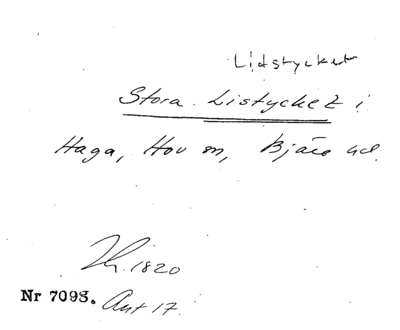 Lidstycket
Stora Listycket i
Haga, Hov sn, Bjäre hd.
1820
Nr 7098. Ant 17.